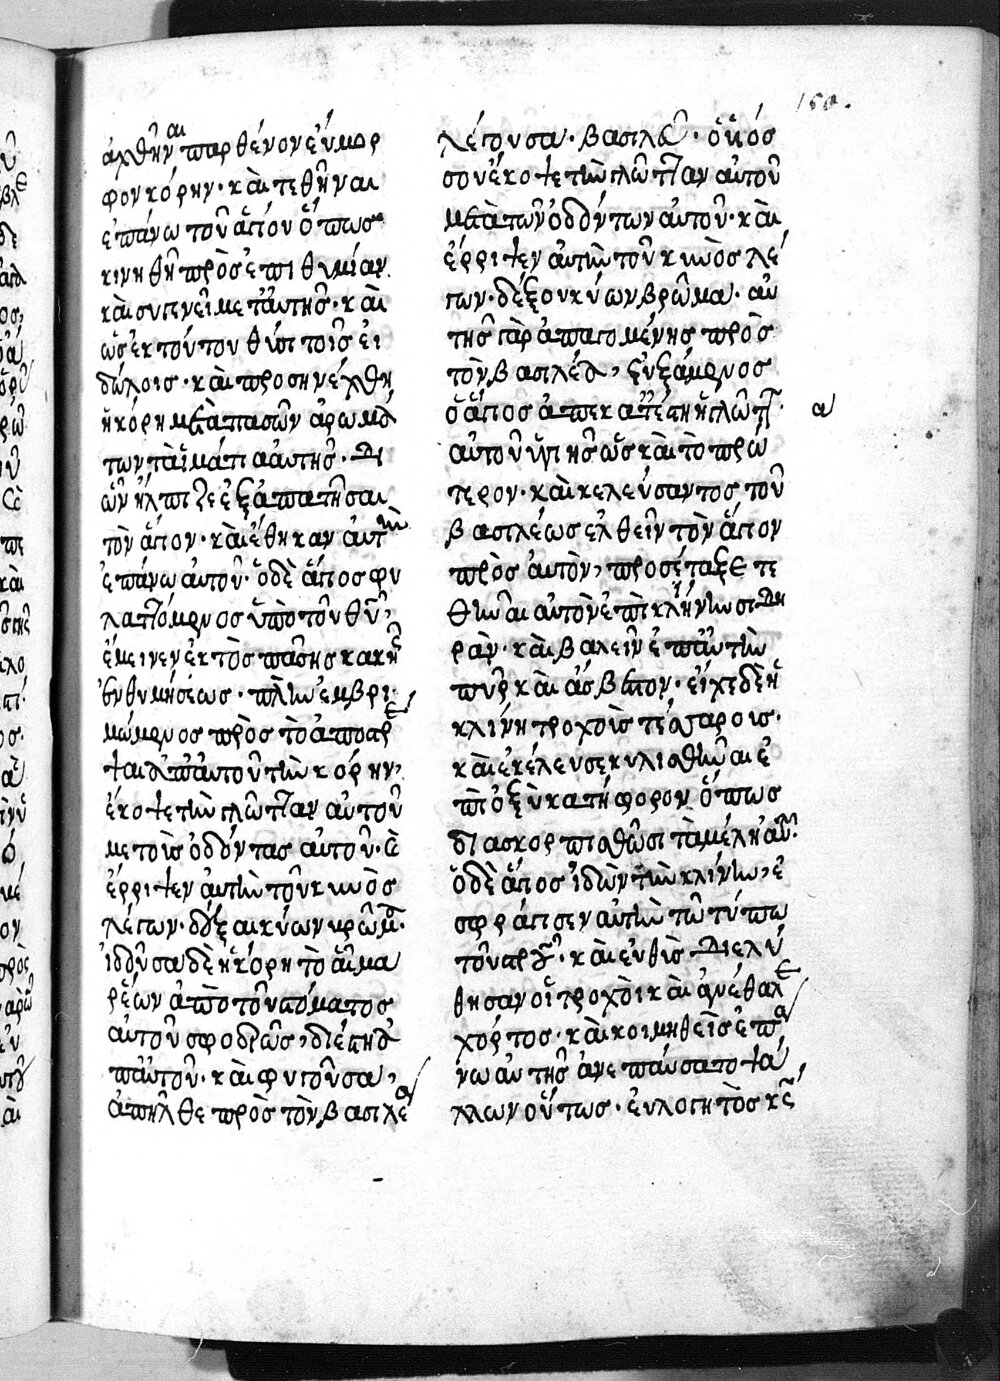 150.
ἀχθῆναι παρθένον εὔμορ
φον κόρην· καὶ τεθῆναι
ἐπάνω τοῦ ἁγίου ὅπως
κινηθῆ πρὸς ἐπιθυμίαν
καὶ συγγενεῖ μετ' αὐτῆς· καὶ
ὡς ἐκ τούτου θύσι τοῖς εἰ
δώλοις· καὶ προσηνέχθη
ἡ κόρη μετὰ πασῶν ἀρωμά
των
ὧν ἤλπιζε ἐξαπατῆσαι
τὸν ἅγιον· καὶ ἔθηκαν αὐτὴν
ἐπάνω αὐτοῦ· ὁ δὲ ἅγιος φυ
λαττόμενος ὑπὸ τοῦ θυ,
ἔμεινεν ἐκτὸς πάσης κακῆς
ἐνθυμήσεως· πλὴν ἐμβρι
μώμενος πρὸς τὸ ἀποστρέ
ψαι ἀπ' αὐτοῦ τὴν κόρην,
ἔκοψε τὴν γλῶτταν αὐτοῦ
με τοῖς ὀδόντας αὐτοῦ· καὶ
ἔρριψεν αὐτὴν τοῦ κυνὸς
λέγων· δέξαι κύων βρῶμα·
ἰδοῦσα δὲ ἡ κόρη τὸ αἷμα
ρέων ἀπὸ τοῦ στόματος
αὐτοῦ σφοδρῶς, διέστη
ἀπ' αὐτοῦ· καὶ φυγοῦσα,
ἀπῆλθε πρὸς τὸν βασιλέα
λέγουσα· βασιλεῦ· ὁ υἱός
σου ἔκοψε τὴν γλῶτταν αὐτοῦ
μετὰ τῶν ὀδόντων αὐτοῦ· καὶ
ἔρριψεν αὐτὴν τοῦ κυνὸς λέ
γων· δέξου κύων βρῶμα· αὐ
τῆς γὰρ ἀπαγομένης πρὸς
τὸν βασιλέα, εὐξάμενος
ὁ ἅγιος ἀπεκατέστη ἡ γλῶττα
αὐτοῦ ὑγιὴς ὡς καὶ τὸ πρῶ
τερον· καὶ κελεύσαντος τοῦ
βασιλέως ἐλθεῖν τὸν ἅγιον
πρὸς αὐτὸν, προσέταξε τε
θῆναι αὐτὸν ἐπὶ κλίνην σιδη
ρὰν· καὶ βαλεῖν ἐπάνω τὴν
πῦρ καὶ ἄσβεστον· εἶχε δὲ ἡ
κλίνη τροχοὺς τέσσαροις·
καὶ ἐκέλευσε κυλισθῆναι ἐ
πὶ ὀξὺ κατήφορον ὅπως
διασκορπισθῶσι τὰ μέλη αὐτοῦ·
ὁ δὲ ἅγιος ἰδὼν τὴν κλίνην, ἐ
σφράγισεν αὐτὴν τῶ τύπω
τοῦ στροῦ· καὶ εὐθὺς διελύ
θησαν οἱ τροχοὶ καὶ ἀνέθαλε
χόρτος· καὶ κοιμηθεὶς ἐπά
νω αὐτῆς ἀνεπαύσατο ψά
λλων οὕτως· εὐλογητὸς κς